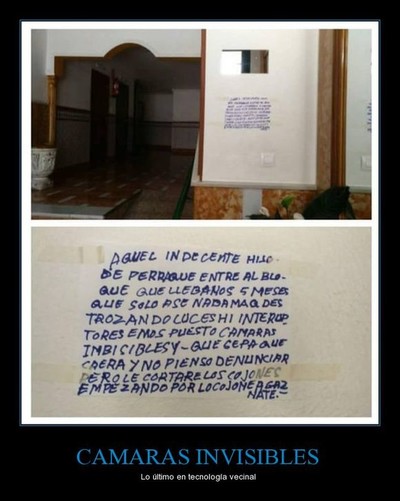 AQUEL INDECENTE HIJO-
DE PERRA QUE ENTRE AL BLO-
QUE QUE LLEBAÑOS 5 MESES
QUE SOLO ASE NADAMAQDES
TROZANDO LUCES HI INTERUP
TORES EMOS PUESTO CAMARAS
IMBISIBLES Y-QUE CEPA QUE
CAERA Y NO PIENSO DENUNCIAR
PERO LE CORTARE LOS COJONES
EMPEZANDO POR LO COJONE A GAZ
NATE.-
CAMARAS INVISIBLES
Lo último en tecnología vecinal